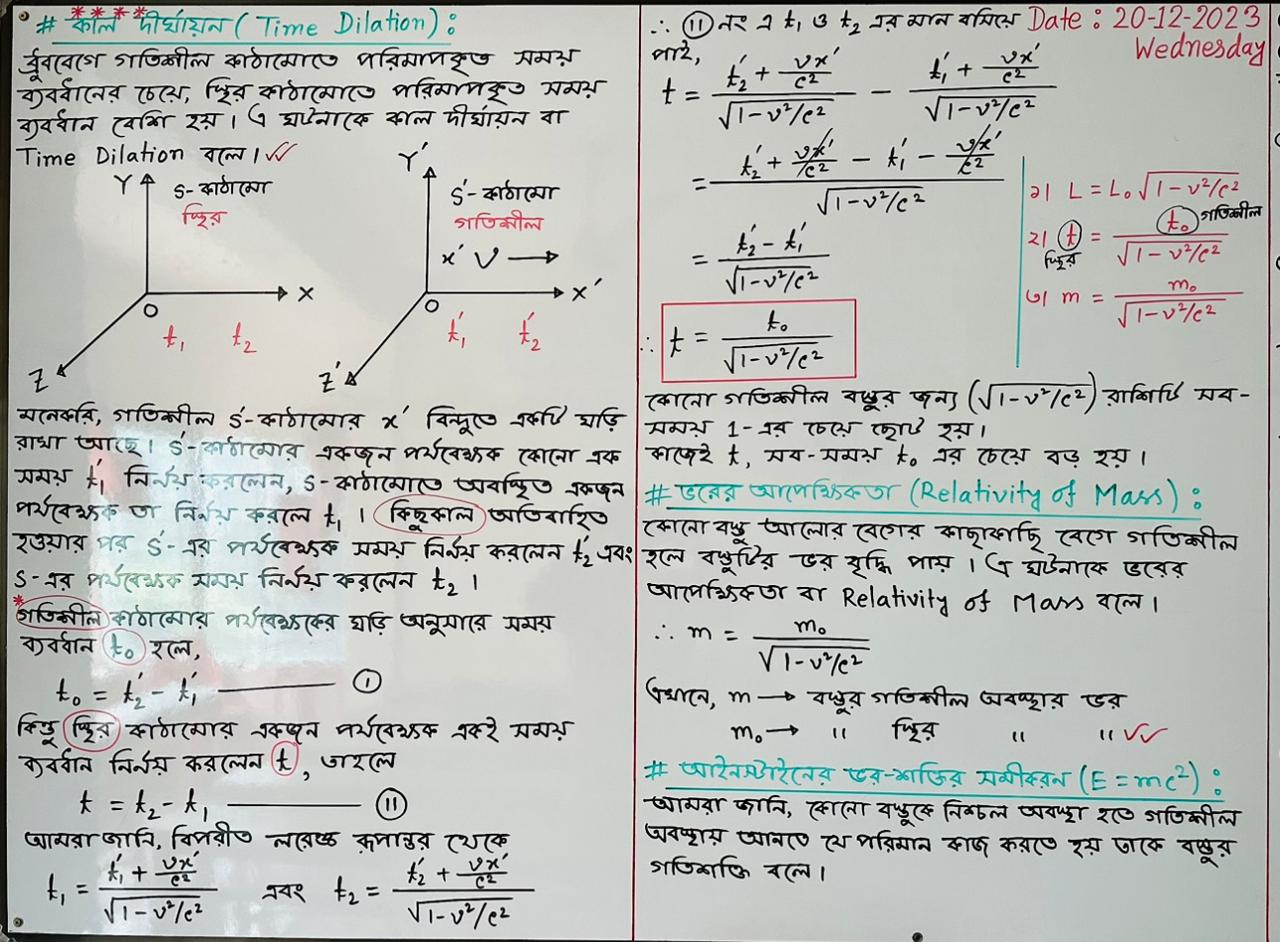 # কাল দীর্ঘায়ন (Time Dilation):
ধ্রুববেগে গতিশীল কাঠামোতে পরিমাপকৃত সময়
ব্যবধানের চেয়ে, স্থির কাঠামোতে পরিমাপকৃত সময়
ব্যবধান বেশি হয়। এ ঘটনাকে কাল দীর্ঘায়ন বা
Time Dilation বলে।
Y S-কাঠামো
স্থির
O X
t₁ t₂
Z
Y′ S′-কাঠামো
গতিশীল
x′ v →
O X′
t₁′ t₂′
Z′
মনেকরি, গতিশীল S′-কাঠামোর x′ বিন্দুতে একটি ঘড়ি
রাখা আছে। S′-কাঠামোর একজন পর্যবেক্ষক কোনো এক
সময় t₁′ নির্নয় করলেন, S-কাঠামোতে অবস্থিত একজন
পর্যবেক্ষক তা নির্নয় করলে t₁। কিছুকাল অতিবাহিত
হওয়ার পর S′-এর পর্যবেক্ষক সময় নির্নয় করলেন t₂′ এবং
S-এর পর্যবেক্ষক সময় নির্নয় করলেন t₂।
*গতিশীল কাঠামোর পর্যবেক্ষকের ঘড়ি অনুসারে সময়
ব্যবধান t₀ হলে,
t₀ = t₂′ - t₁′ —— (I)
কিন্তু স্থির কাঠামোর একজন পর্যবেক্ষক একই সময়
ব্যবধান নির্নয় করলেন t, তাহলে
t = t₂ - t₁ —— (II)
আমরা জানি, বিপরীত লরেঞ্জ রূপান্তর থেকে
t₁ = (t₁′ + vx′/c²)/√(1-v²/c²) এবং t₂ = (t₂′ + vx′/c²)/√(1-v²/c²)
∴ (II) নং এ t₁ ও t₂ এর মান বসিয়ে
পাই,
Date: 20-12-2023
Wednesday
t = (t₂′ + vx′/c²)/√(1-v²/c²) - (t₁′ + vx′/c²)/√(1-v²/c²)
= (t₂′ + vx′/c² - t₁′ - vx′/c²)/√(1-v²/c²)
= (t₂′ - t₁′)/√(1-v²/c²)
∴ t = t₀/√(1-v²/c²)
১। L = L₀√(1-v²/c²)
২। t = t₀/√(1-v²/c²)
স্থির গতিশীল
৩। m = m₀/√(1-v²/c²)
কোনো গতিশীল বস্তুর জন্য (√(1-v²/c²)) রাশিটি সব-
সময় 1-এর চেয়ে ছোট হয়।
কাজেই t, সব-সময় t₀ এর চেয়ে বড় হয়।
# ভরের আপেক্ষিকতা (Relativity of Mass):
কোনো বস্তু আলোর বেগের কাছাকাছি বেগে গতিশীল
হলে বস্তুটির ভর বৃদ্ধি পায়। এ ঘটনাকে ভরের
আপেক্ষিকতা বা Relativity of Mass বলে।
∴ m = m₀/√(1-v²/c²)
এখানে, m → বস্তুর গতিশীল অবস্থার ভর
m₀ → " স্থির " "
# আইনস্টাইনের ভর-শক্তির সমীকরন (E = mc²):
আমরা জানি, কোনো বস্তুকে নিশ্চল অবস্থা হতে গতিশীল
অবস্থায় আনতে যে পরিমান কাজ করতে হয় তাকে বস্তুর
গতিশক্তি বলে।